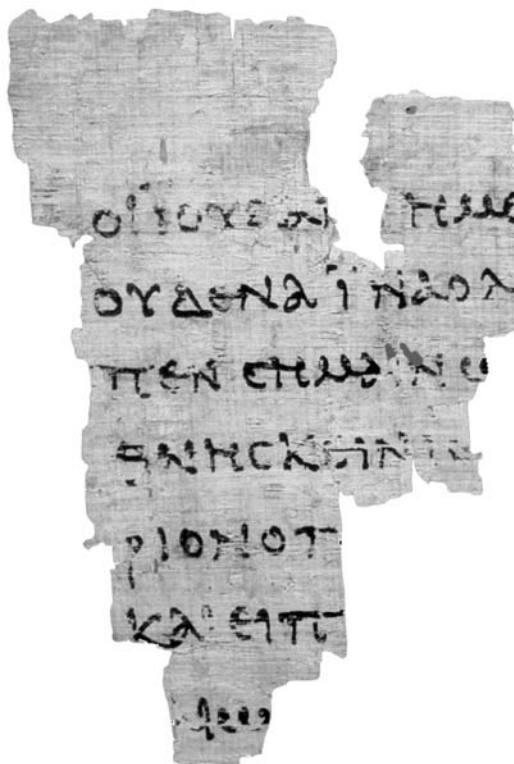 ΟΙΪΟΥΔΑΙ ΗΜΕ
ΟΥΔΕΝΑΪΝΑΟΛ
ΠΕΝCΗΜΑΙΝΩ
ΘΝΗCΚΕΙΝΙ
ΡΙΟΝΟΠ
ΚΑΙΕΙΠ